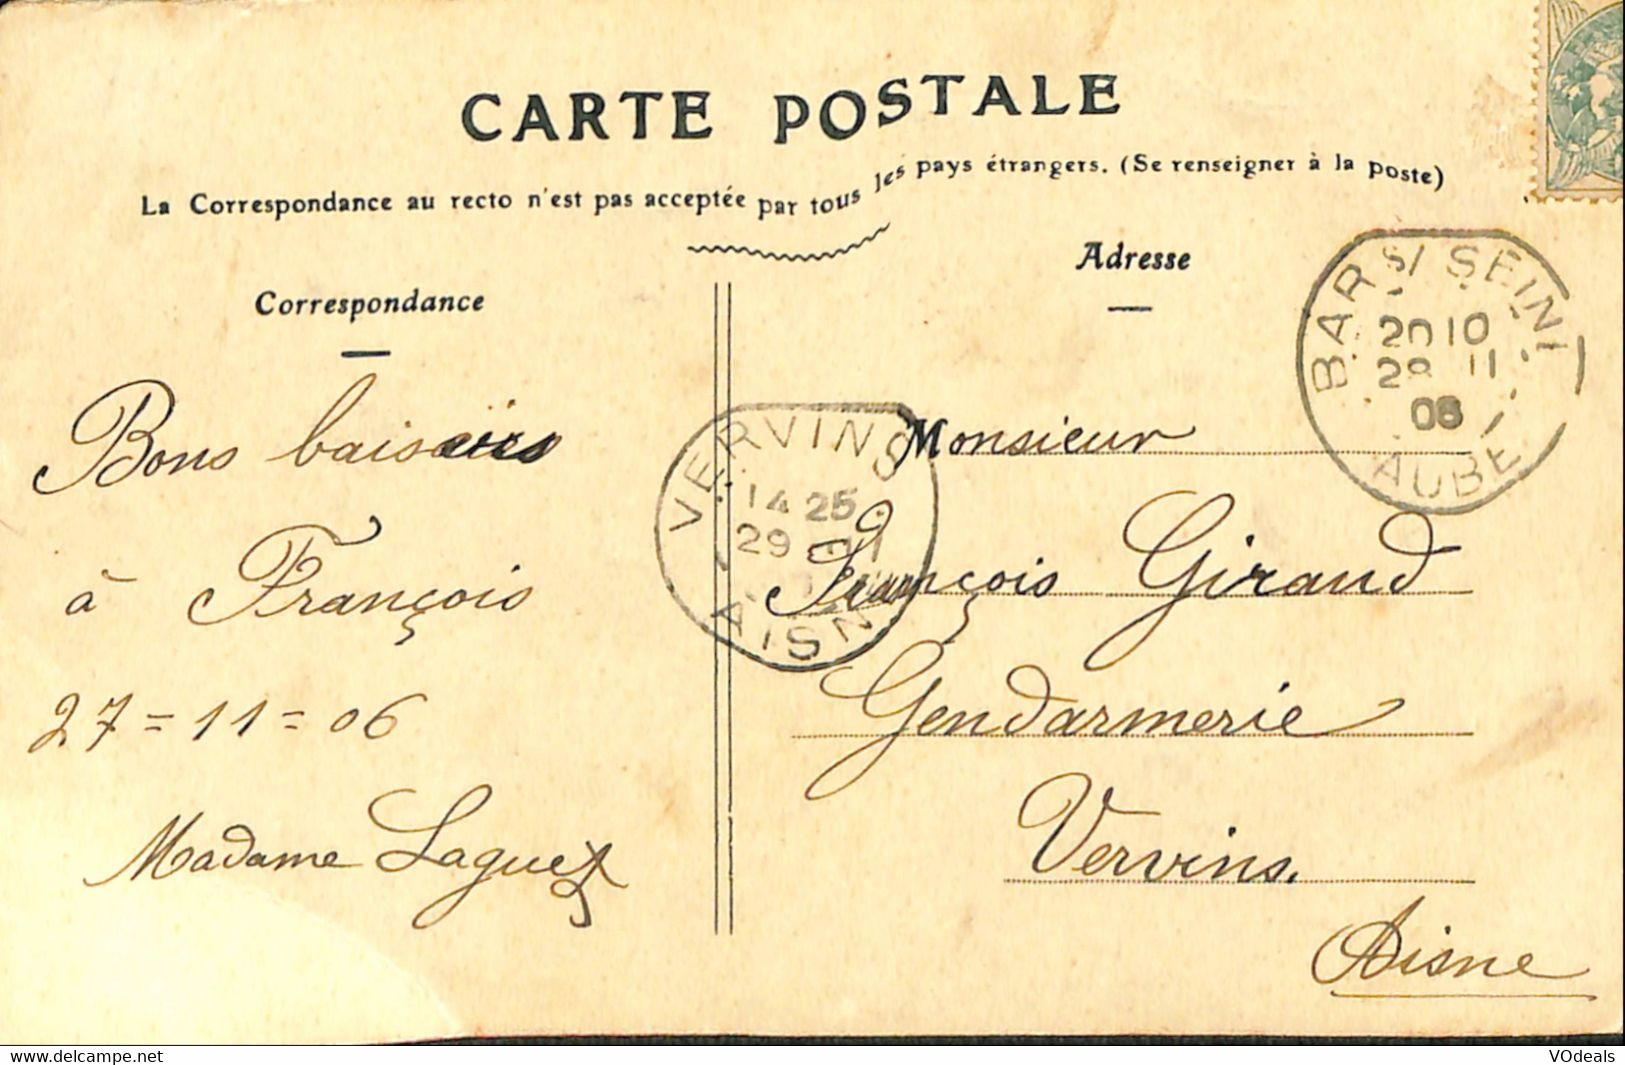 CARTE POSTALE
La Correspondance au recto n'est pas acceptée par tous les pays étrangers. (Se renseigner à la poste)
Correspondance
Adresse
BAR S/ SEINE
20 10
28 11
06
AUBE
VERVINS
14 25
29 11
AISNE
Bons baisers
à François
27=11=06
Madame Laguex
Monsieur
François Giraud
Gendarmerie
Vervins.
Aisne
www.delcampe.net
VOdeals